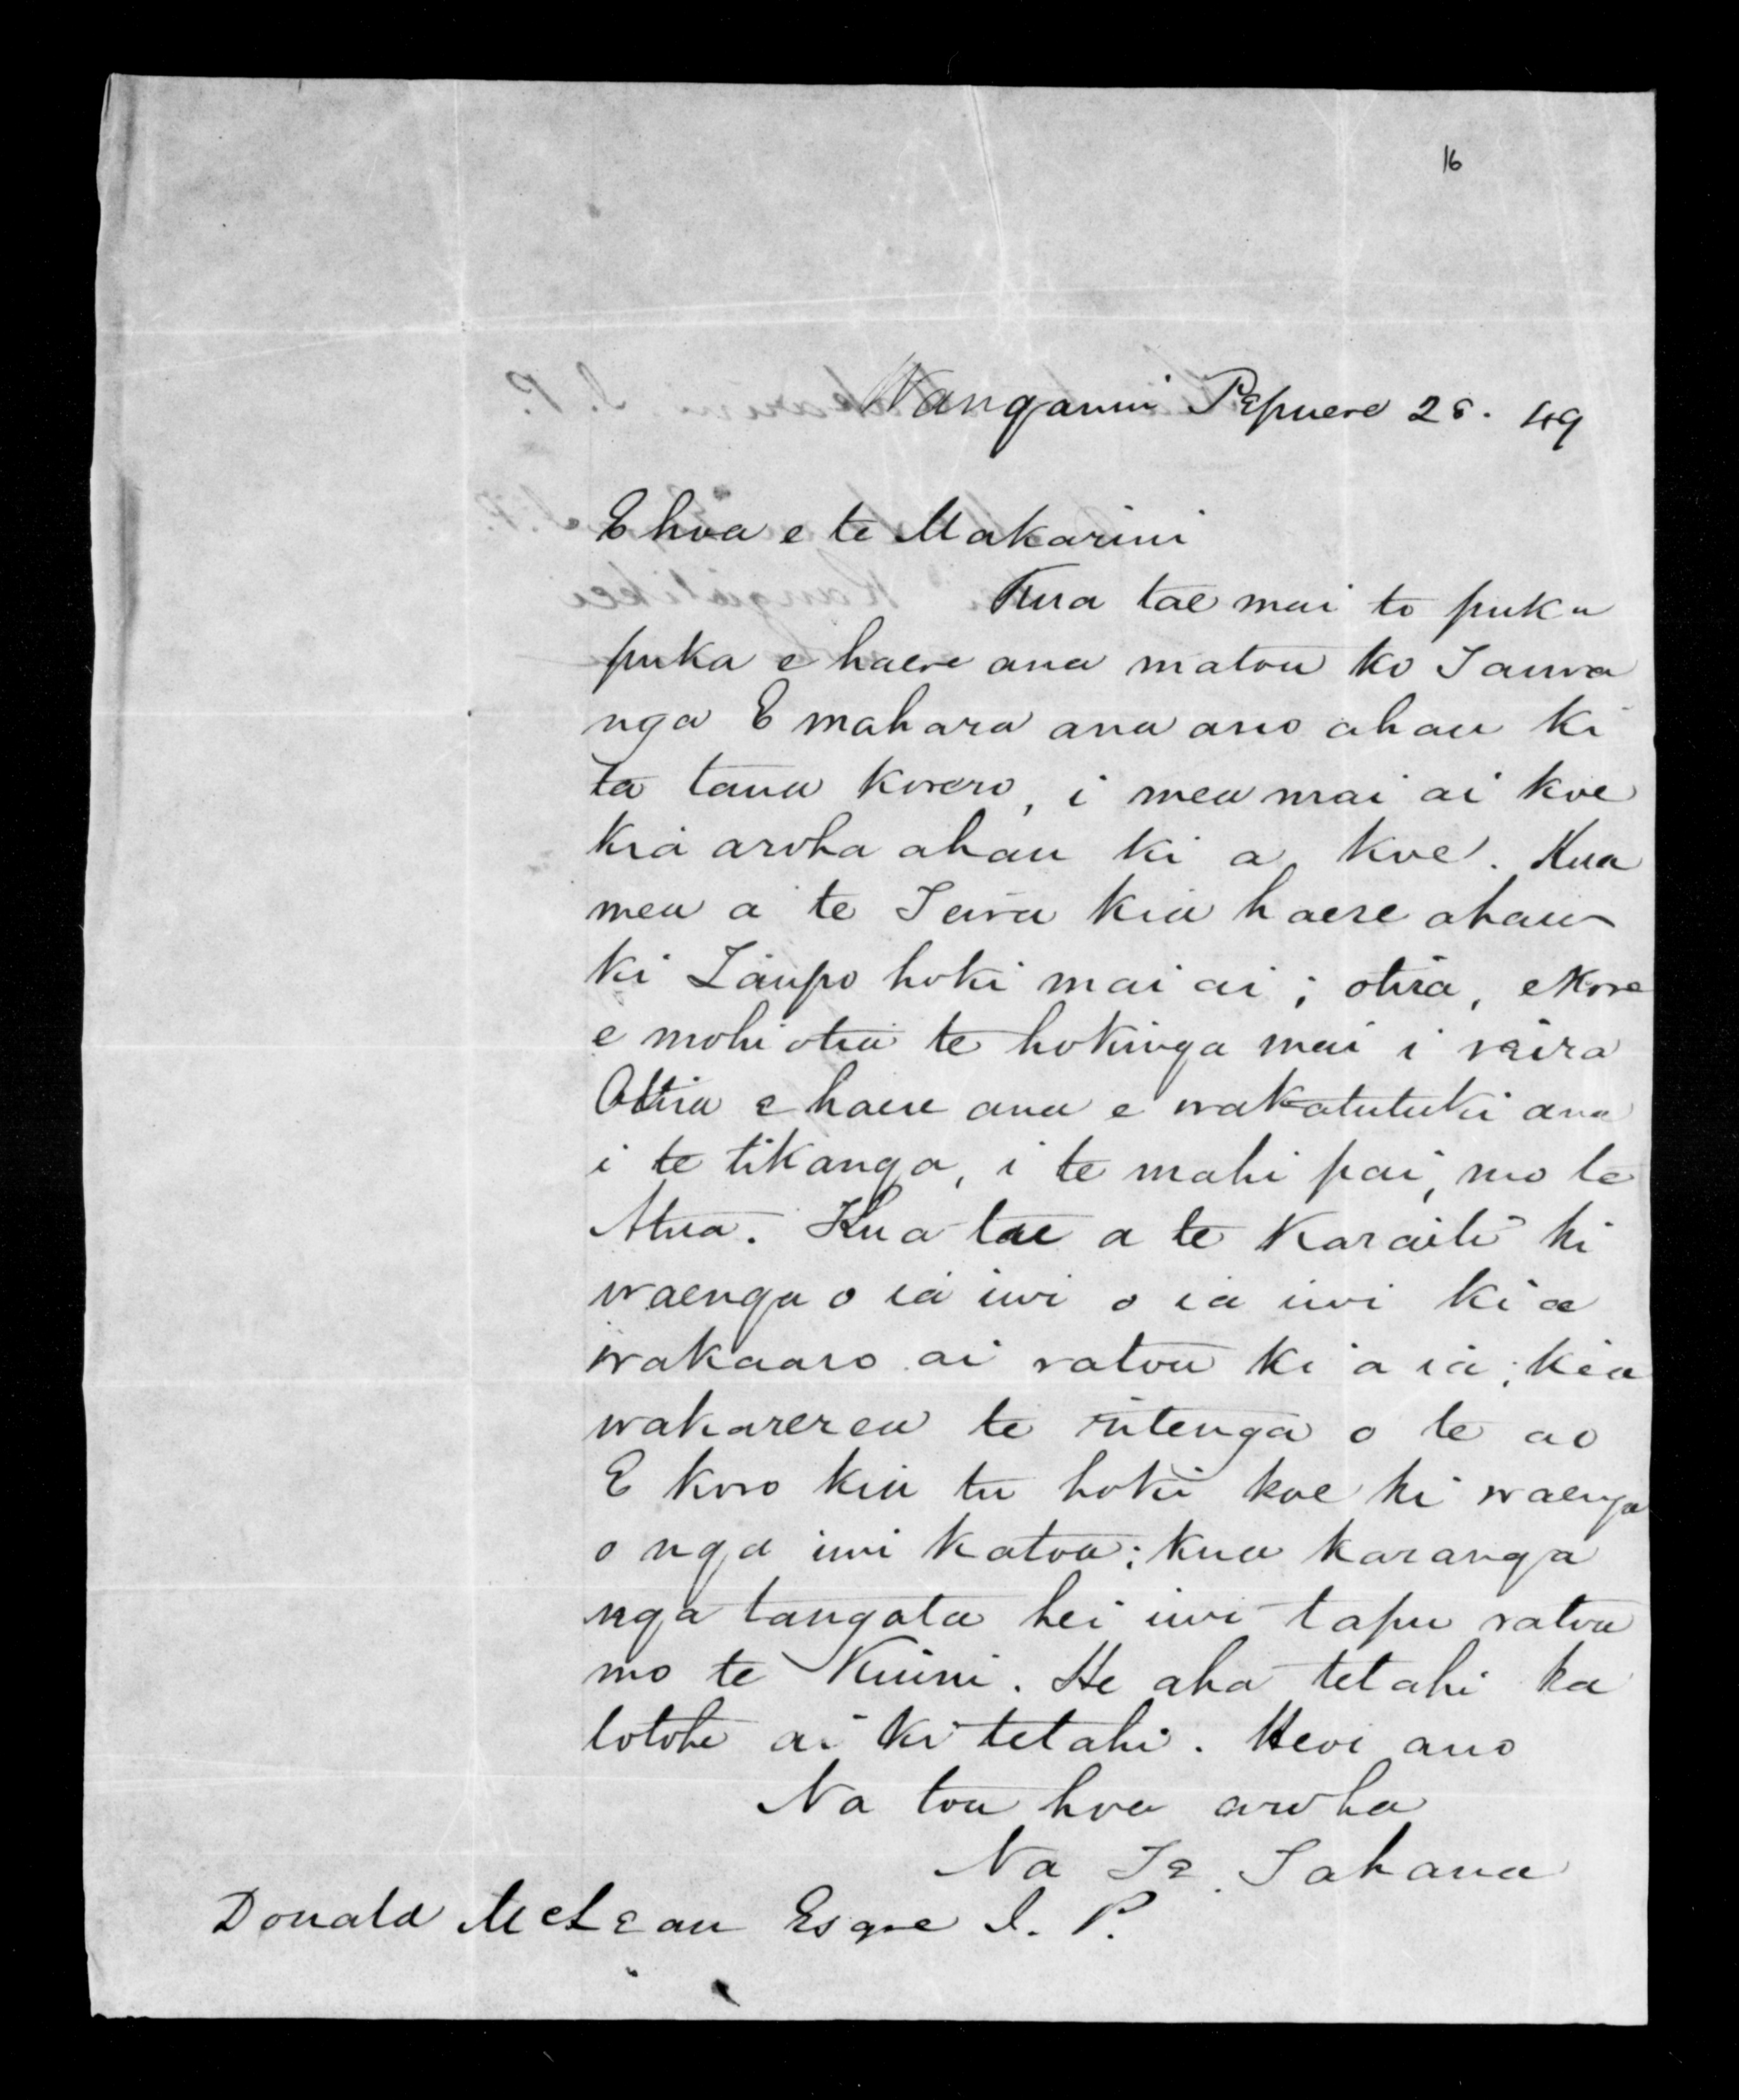 16
Wanganui Pepuere 28. 49
E hoa e te Makarini
Kua tae mai to puka
puka e haere ana matou ko Tauwa
nga E mahara ana ano ahau ki
ta taua korero, i mea mai ai koe
kia aroha ahau ki a koe. Kua
mea a te Teira kia haere ahau
ki Taupo hoki mai ai; otira, ekore
e mohiotia te hokinga mai i reira
Otira e haere ana e wakatutuki ana
i te tikanga, i te mahi pai, mo te
Atua. Kua tae a te Karaiti ki
waenga o ia iwi o ia iwi kia
wakaaro ai ratou ki a ia; kia
wakarerea te ritenga o te ao
E koro kia tu hoki koe ki waenga
o nga iwi katoa; kua karanga
nga tangata hei iwi tapu ratou
mo te Kuini. He aha tetahi ka
totohe ai ki tetahi. Heoi ano
Na tou hoa aroha
Na Te Tahana
Donald McLean Esqre I. P.